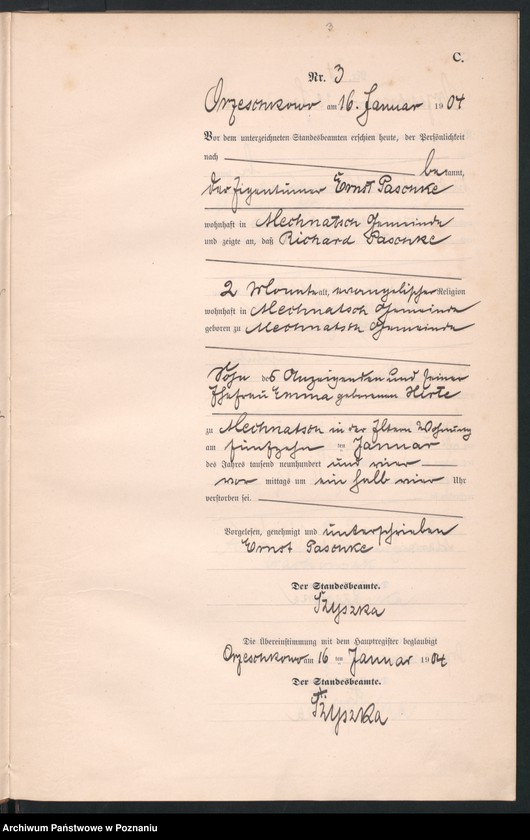 3
C.
Nr. 3
Orzeschkowo am 16. Januar 1904
Vor dem unterzeichneten Standesbeamten erschien heute, der Persönlichkeit
nach bekannt,
der Eigentümer Ernst Paschke
wohnhaft in Mechnatsch Gemeinde
und zeigte an, daß Richard Paschke
2 Monate alt, evangelischer Religion
wohnhaft in Mechnatsch Gemeinde
geboren zu Mechnatsch Gemeinde
Sohn des Anzeigenden und seiner
Ehefrau Emma geborenen Hirte
zu Mechnatsch in der Eltern Wohnung
am fünfzehn ten Januar
des Jahres tausend neunhundert und vier
vor mittags um ein halb vier Uhr
verstorben sei.
Vorgelesen, genehmigt und unterschrieben
Ernst Paschke
Der Standesbeamte.
Szyszka
Die Übereinstimmung mit dem Hauptregister beglaubigt
Orzeschkowo am 16 ten Januar 1904
Der Standesbeamte.
Szyszka
Archiwum Państwowe w Poznaniu